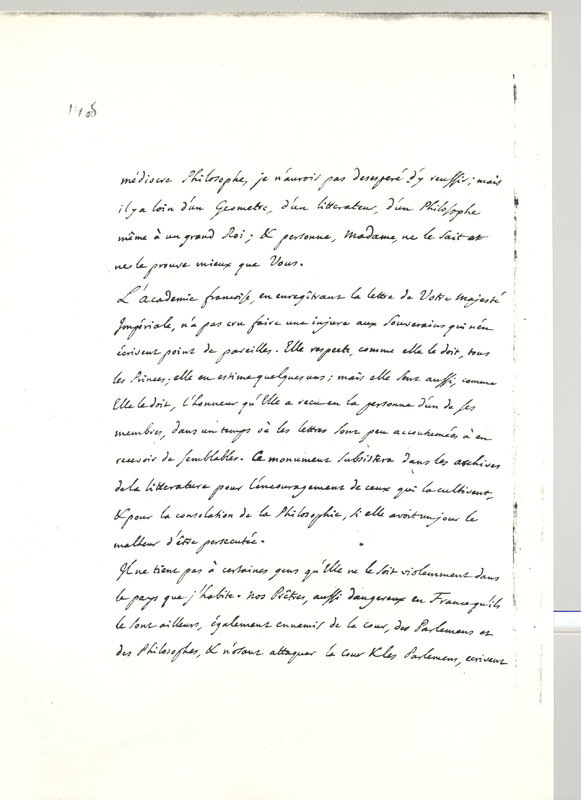 médiocre Philosophe, je n'aurois pas desesperé d'y reussir; mais
il y a loin d'un Geometre, d'un litterateur, d'un Philosophe
même à un grand Roi; & personne, Madame, ne le sait et
ne le prouve mieux que Vous.
L'Academie françoise, en enregîtrant la lettre de Votre Majesté
Impériale, n'a pas cru faire une injure aux Souverains qui n'en
écrivent point de pareilles. Elle respecte, comme elle le doit, tous
les Princes; elle en estime quelques uns; mais elle sent aussi, comme
Elle le doit, l'honneur qu'Elle a recu en la personne d'un de ses
membres, dans un temps où les lettres sont peu accoutumées à en
recevoir de semblables. Ce monument subsistera dans les archives
de la litterature pour l'encouragement de ceux qui la cultivent,
& pour la consolation de la Philosophie, si elle avoit un jour le
malheur d'être persecutée.
Il ne tient pas à certaines gens qu'Elle ne le soit violemment dans
le pays que j'habite. Nos Prêtres, aussi dangereux en France qu'ils
le sont ailleurs, également ennemis de la cour, des Parlemens et
des Philosophes, & n'osant attaquer la cour & les Parlemens, ecrivent